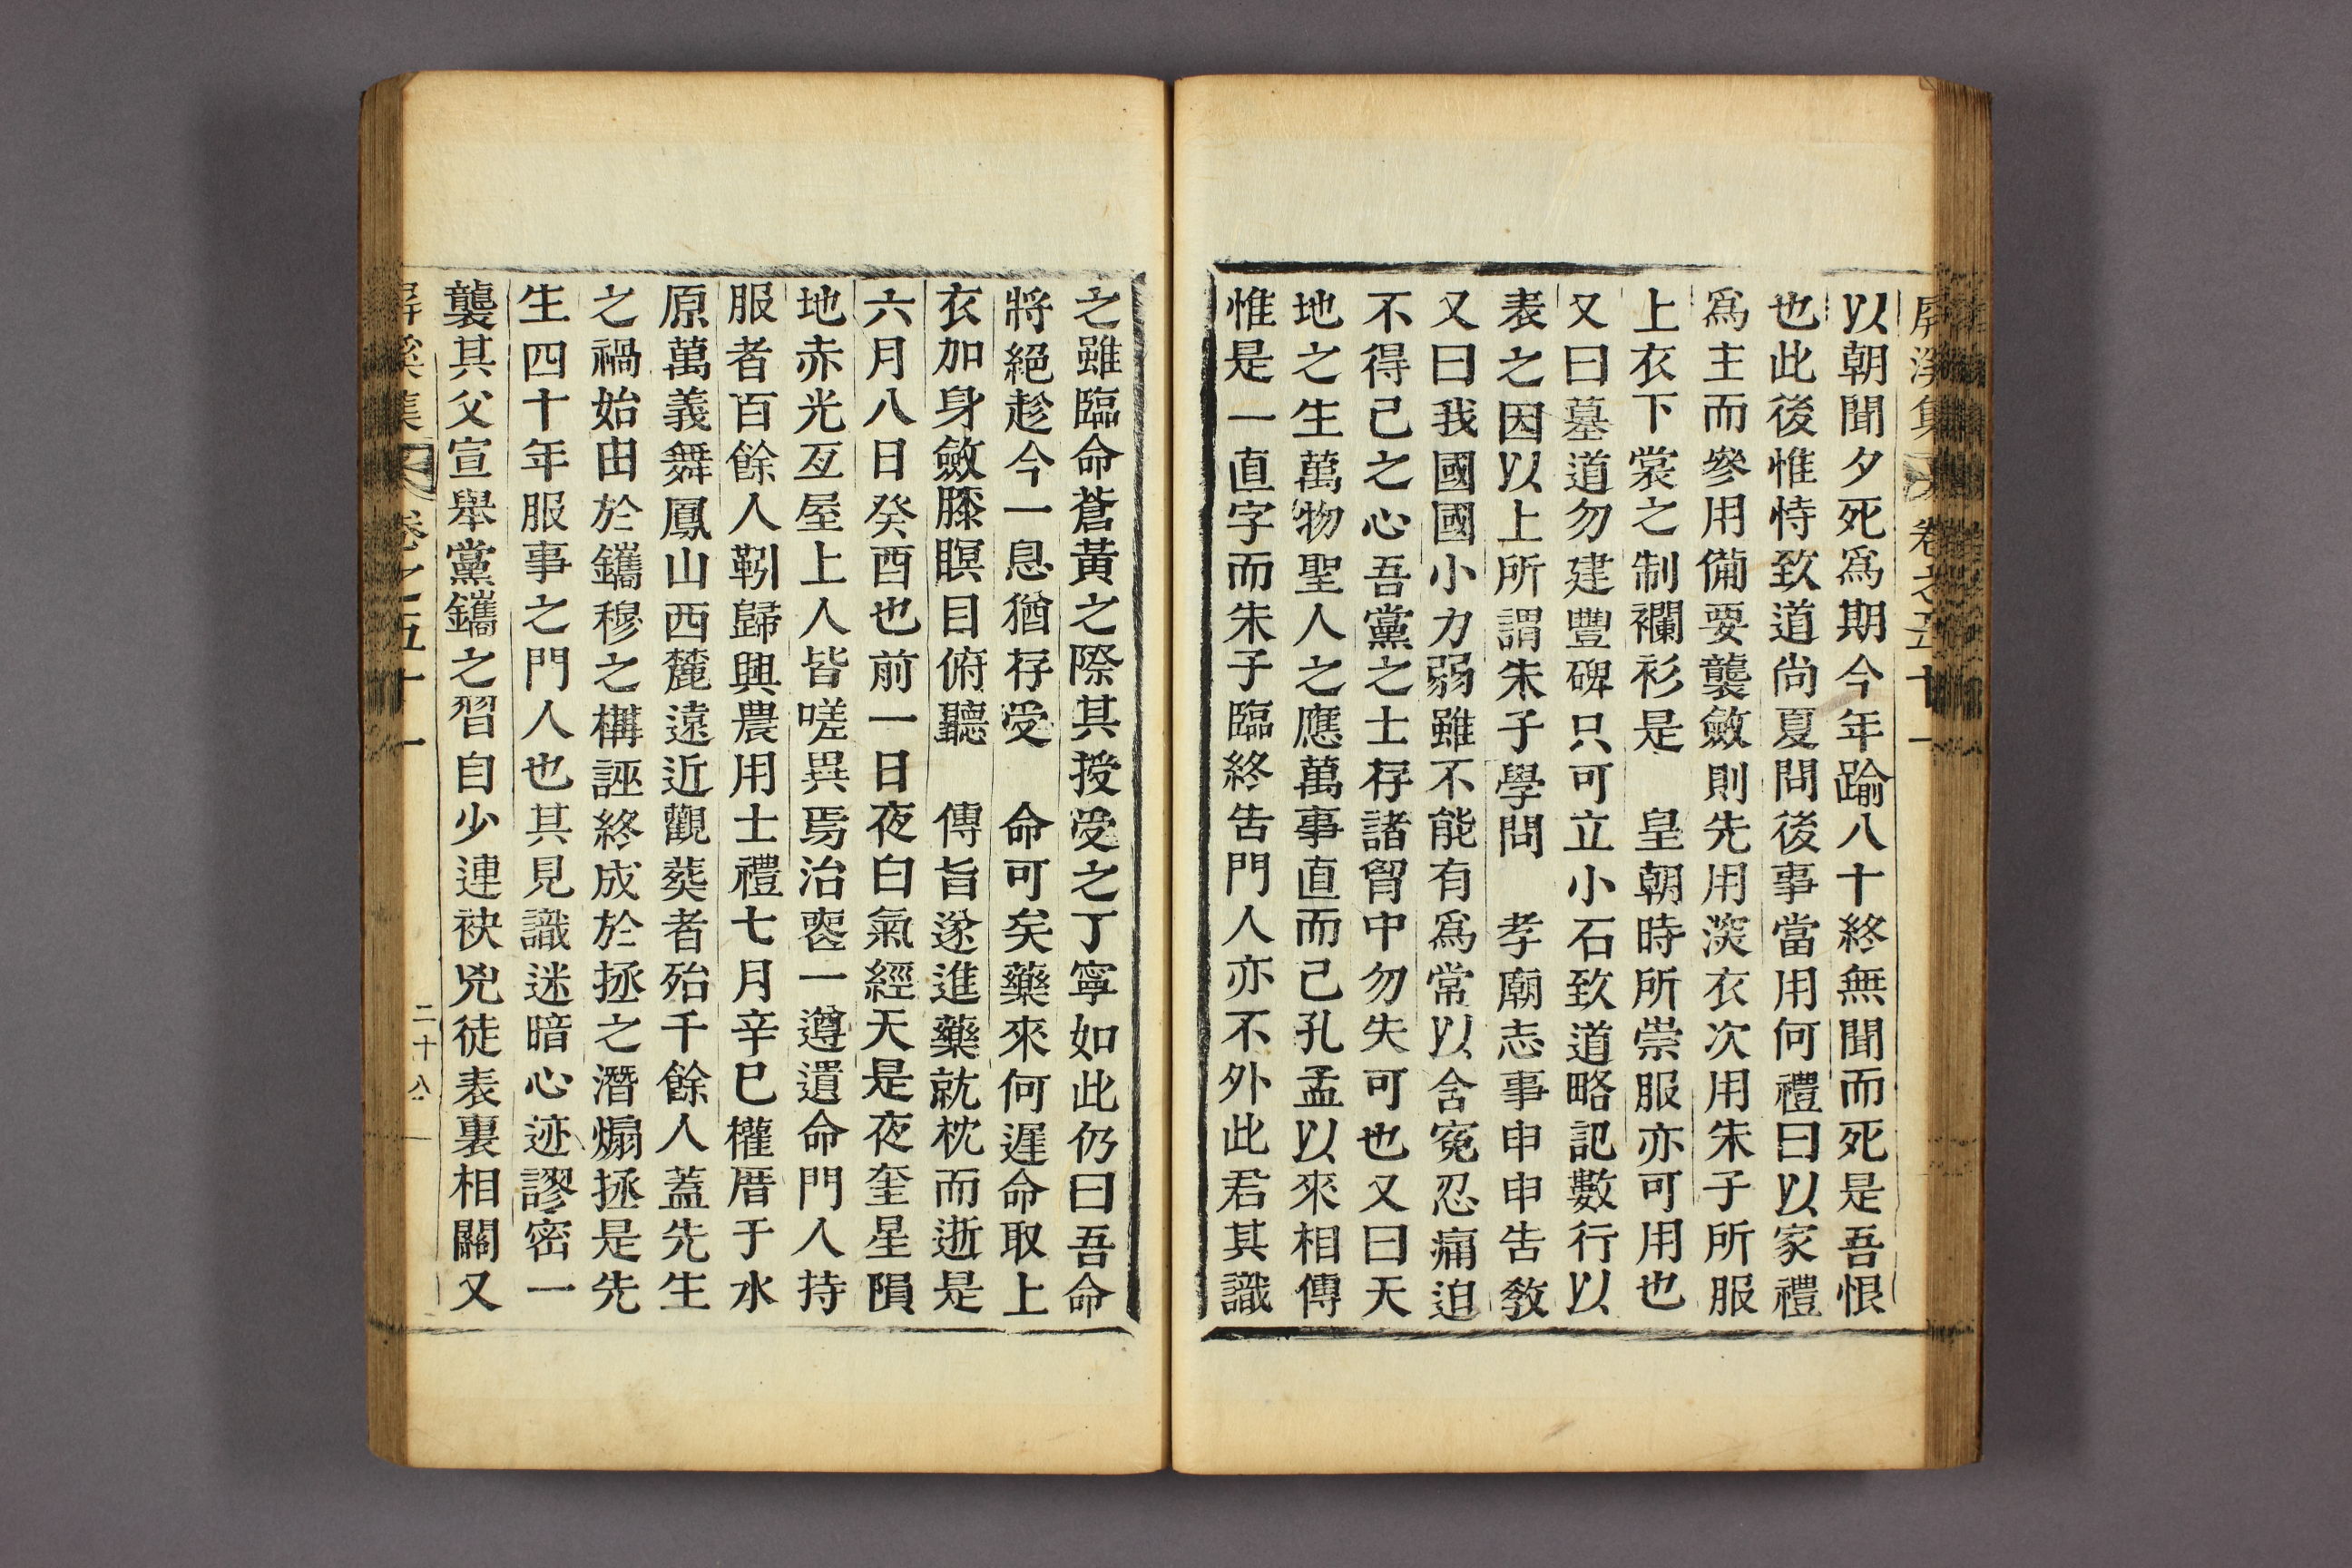 屛溪集 卷之五十一
以朝聞夕死爲期今年踰八十終無聞而死是吾恨
也此後惟恃致道尙夏問後事當用何禮曰以家禮
爲主而參用備要襲斂則先用深衣次用朱子所服
上衣下裳之制襴衫是 皇朝時所崇服亦可用也
又曰墓道勿建豐碑只可立小石致道略記數行以
表之因以上所謂朱子學問 孝廟志事申申告敎
又曰我國國小力弱雖不能有爲常以含寃忍痛迫
不得已之心吾黨之士存諸胷中勿失可也又曰天
地之生萬物聖人之應萬事直而已孔孟以來相傳
惟是一直字而朱子臨終告門人亦不外此君其識
之雖臨命蒼黃之際其授受之丁寧如此仍曰吾命
將絕趁今一息猶存受 命可矣藥來何遲命取上
衣加身斂膝瞑目俯聽 傳旨遂進藥就枕而逝是
六月八日癸酉也前一日夜白氣經天是夜奎星隕
地赤光亙屋上人皆嗟異焉治喪一遵遺命門人持
服者百餘人靷歸興農用士禮七月辛巳權厝于水
原萬義舞鳳山西麓遠近觀葬者殆千餘人蓋先生
之禍始由於鑴穆之構誣終成於拯之潛煽拯是先
生四十年服事之門人也其見識迷暗心迹謬密一
襲其父宣擧黨鑴之習自少連袂兇徒表裏相關又
屛溪集 卷之五十一 二十八